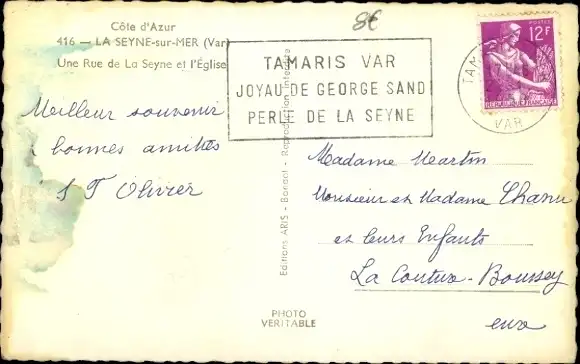 8€
Côte d'Azur
416 — LA SEYNE-sur-MER (Var)
Une Rue de La Seyne et l'Église
TAMARIS VAR
JOYAU DE GEORGE SAND
PERLE DE LA SEYNE
POSTES
12F
REPUBLIQUE FRANÇAISE
TAM
VAR
Meilleur souvenir
bonnes amitiés
Olivier
Editions ARIS - Bandol - Reproduction interdite
Madame Martin
Monsieur et Madame
et leurs Enfants
La Coutur - Boussey
eure
PHOTO
VERITABLE